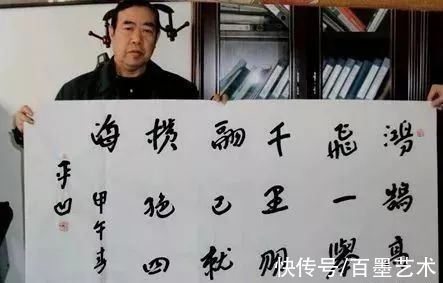 鸿鹄高
飛一舉
千里羽
翮已就
横绝四
海 甲午春
平凹
快传号/百墨艺术